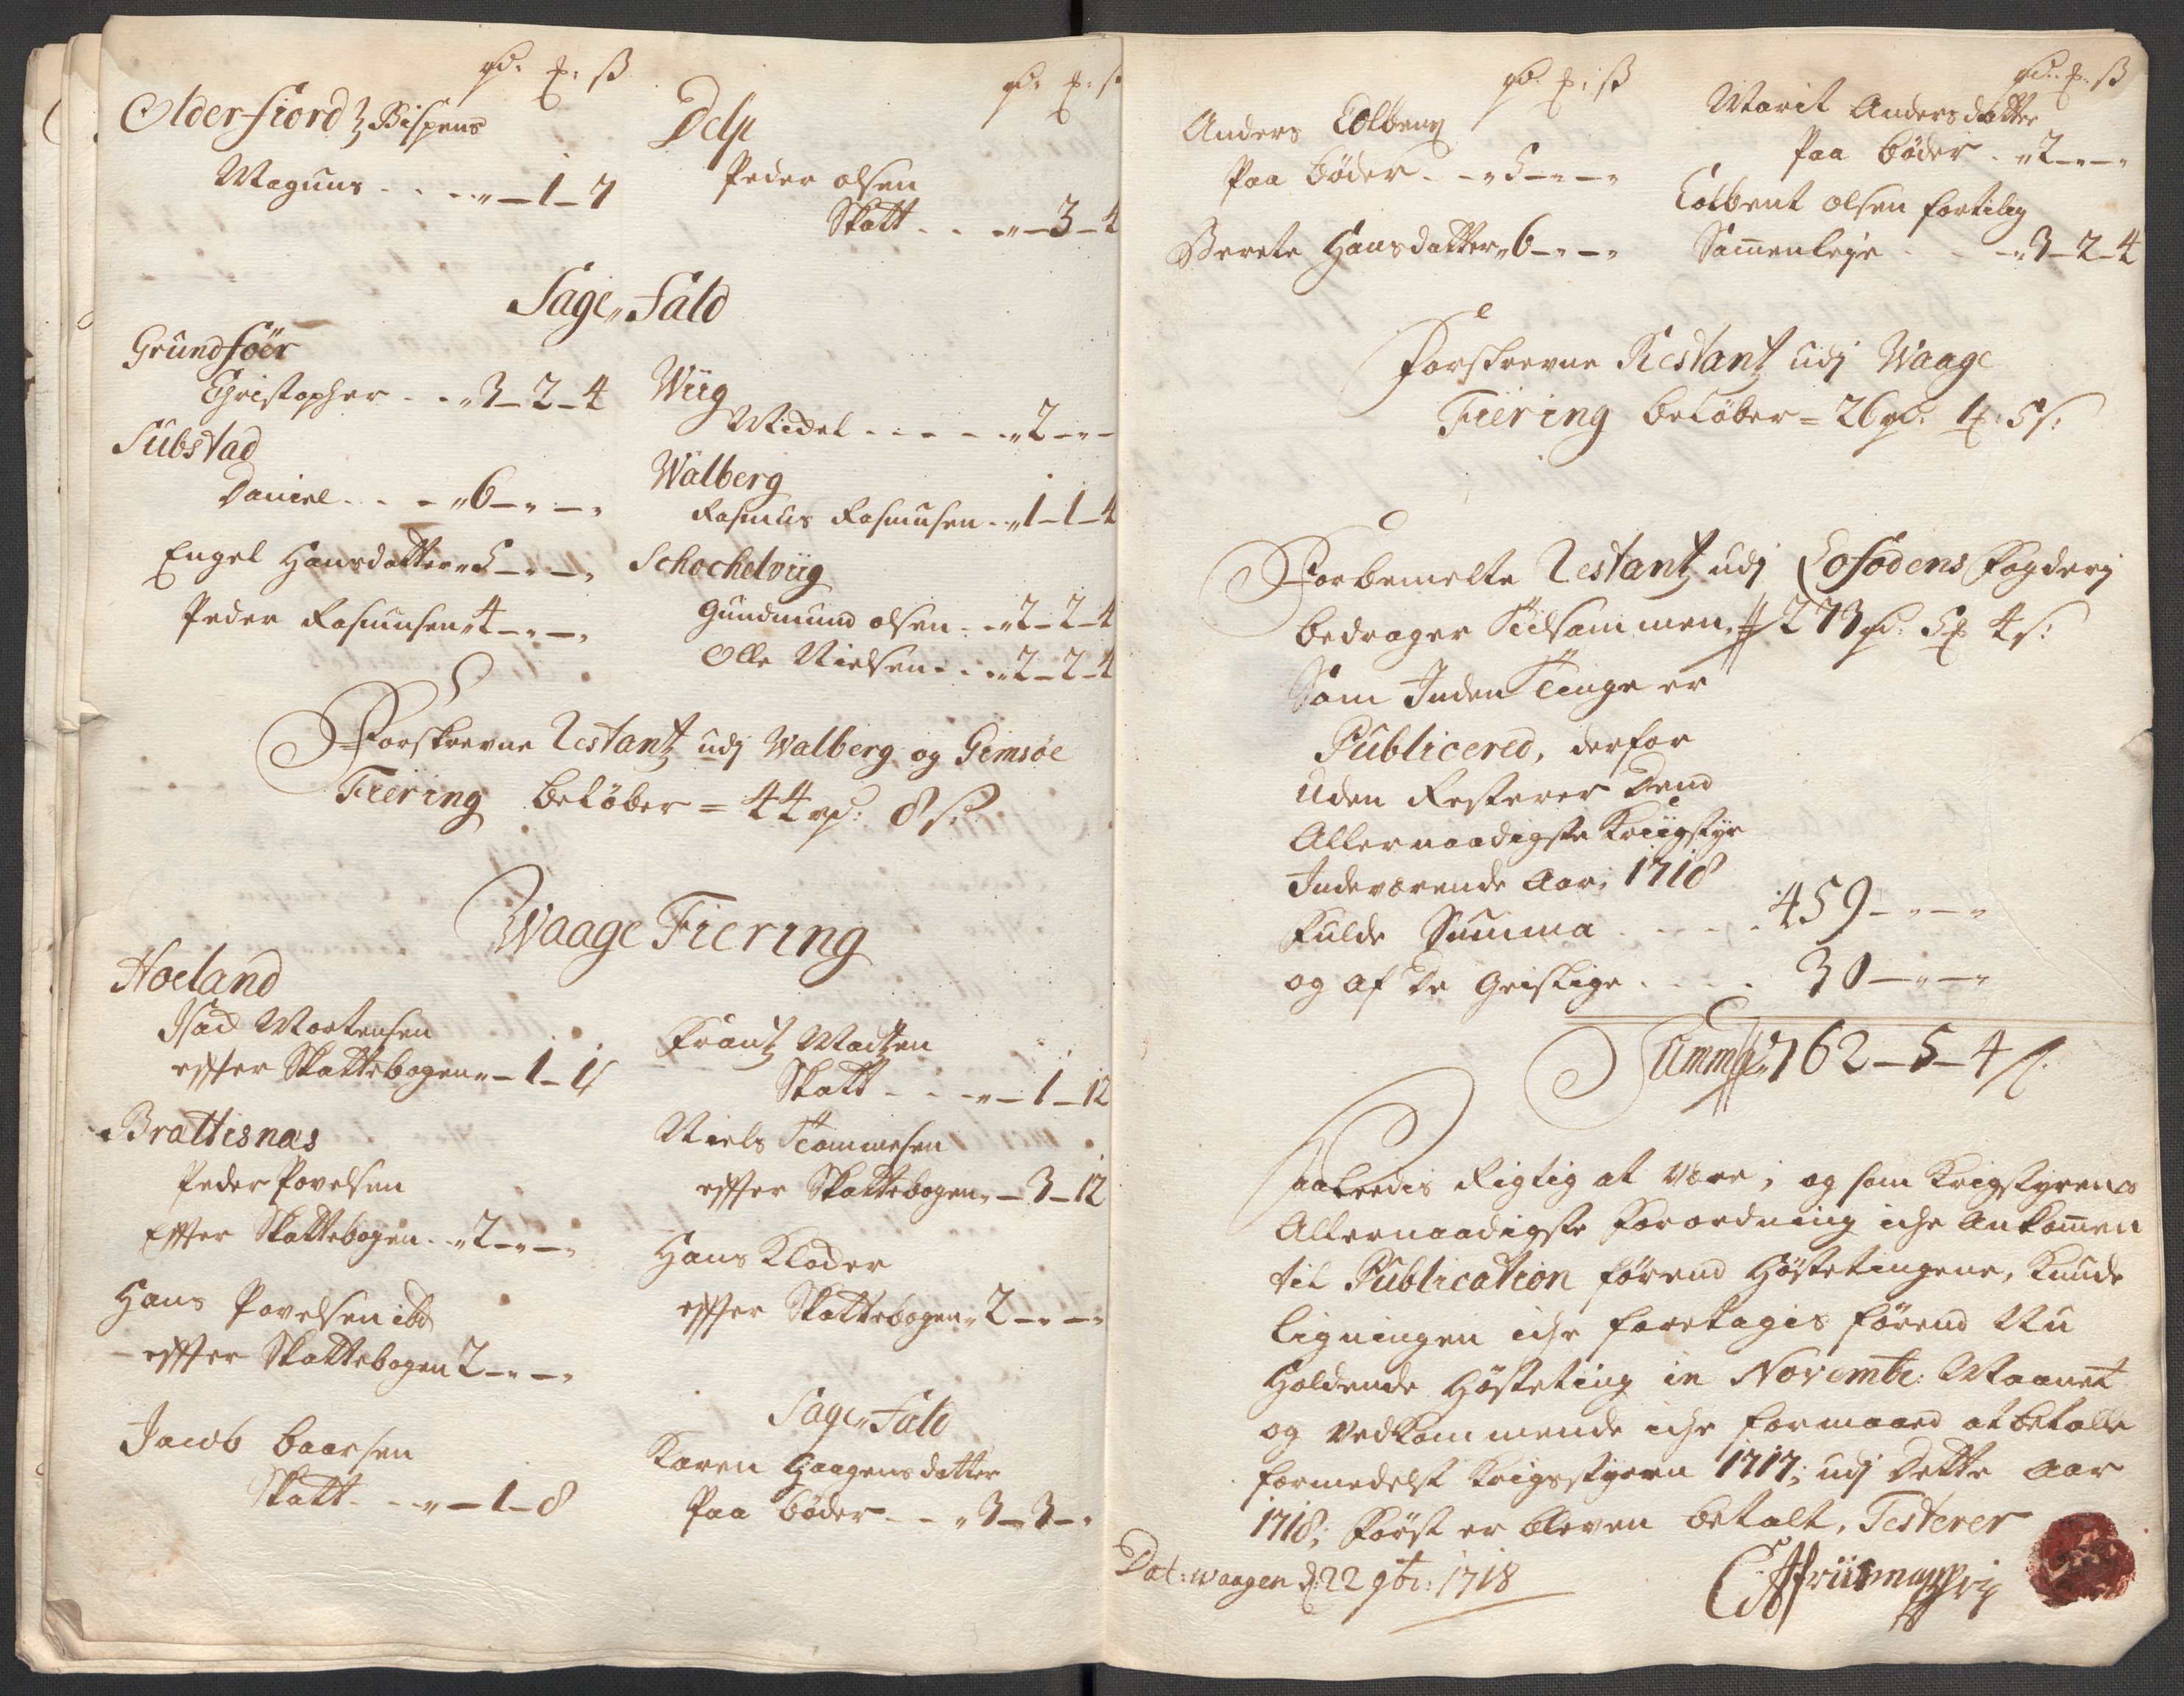 Olderfiord Bispens
Magnus - - - „ – 1 – 7
Delp
Peder olsen
Skatt - - - „ – 3 – 4
Sage„Fald
Grundföer
Christopher - - „ 3 – 2 – 4
Substad
Daniel - - - „ 6 – „ – „
Engel Hansdatter „ 5 – „ – „
Peder Rasmusen „ 4 – „ – „
Wiig
Midel - - - - „ 2 – „ –
Walberg
Rasmus Rasmusen - „ 1 – 1 – 4
Schochelviig
Gundmund olsen - - „ 2 – 2 – 4
Olle Nielsen - - „ 2 – 2 – 4
Forskrevne Restantz udj Walberg og Gimsöe
Fiering belöber = 44 rd: 8 s:
Waage Fiering
Hoeland
Isad Mortensen
efter Skattebogen „ – 1 – 1
Brattisnæs
Peder Povelsen
Efter Skattebogen - „ 2 – „ – „
Hans Povelsen ibd
efter Skattebogen 2 – „ – „
Jacob baarsen
Skatt - - „ – 1 – 8
Frantz Madtzen
Skatt - - - „ – 1 – 12
Niels Tommesen
efter Skattebogen „ – 3 – 12
Hans Kloder
efter Skattebogen „ 2 – „ – „
Sage„Fald
Karen Haagensdatter
Paa böder - - „ 3 – 3 – „
Anders
Paa böder - - „ 5 – „ – „
Berete Hansdatter „ 6 – „ – „
Marit Andersdatter
Paa böder - „ 2 – „ – „
Colbent olsen fortilig
Sammenleye - - „ 3 – 2 – 4
Forskrevne Restantz udj Waage
Fiering belöber = 26 rd: 1 : 5 s:
Forbemelte Restantz udj Lofodens Fogderj
bedrager Tilsammen 273 rd: 5 4 s:
Som Inden Tinge er
Publicered, derfor
uden Resterer Dend
Allernaadigste Kriigstyr
Indeværende Aar: 1718
Fulde Summa - - - - 459 – „ – „
og af De Geistlige - - - - 30 – „ – „
Summa 762 – 5 – 4 s.
Saaledis Rigtig at være, og som Krigstyrens
Allernaadigste Forordning iche Ankommen
til Publication förend Höstetingene, Kunde
ligningen iche foretagis förend Nu
Holdende Hösteting in Novembr: Maanet
og Vedkommende iche formaaed at betalle
formedelst Krigsstyren 1717; udj Dette Aar
1718; Först er bleven betalt. Testerer
Dat: Waagen d: 22 9br: 1718